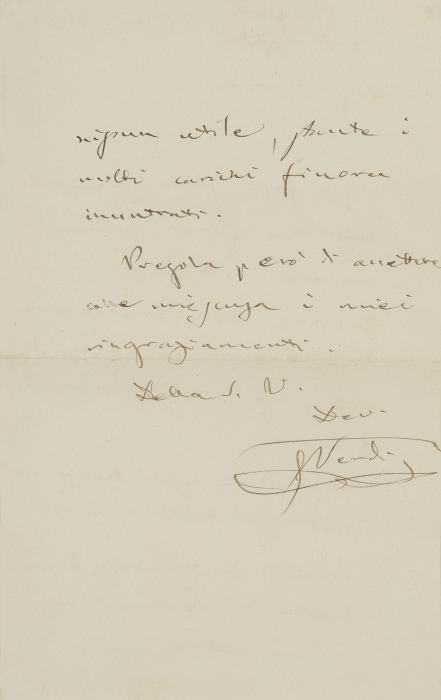 nissun utile, stante i
molti carichi finora
incontrati.
Pregola però di accettare
colle mie scuse i miei
ringraziamenti.
Della S. V.
Dev.
G Verdi